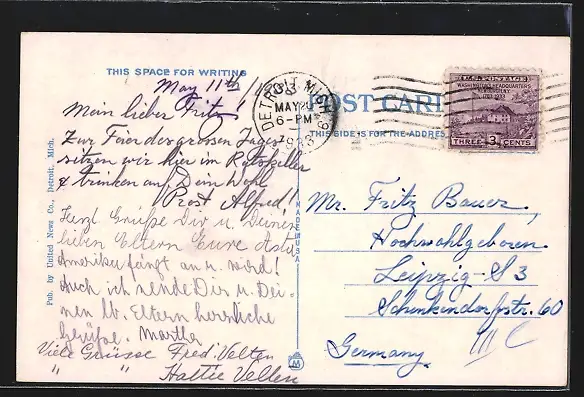 THIS SPACE FOR WRITING
May 11th 1933
Mein lieber Fritz!
Zur Feier des grossen Tages
sitzen wir hier im Ratskeller
& trinken auf Dein Wohl
Prost Alfred!
Herzl Grüße Dir u. Deinen
lieben Eltern Eure
Amerika fängt an u. wird!
Auch ich sende Dir u. Dei-
nen lb. Eltern herzliche
Grüße. Martha
Viele Grüsse Fred Velten
" " Hattie Velten
Pub. by United News Co., Detroit, Mich.
MADE IN U.S.A.
DETROIT, MICH.
MAY
6-PM
1933
POST CARD
THIS SIDE IS FOR THE ADDRESS
U.S. POSTAGE
WASHINGTON'S HEADQUARTERS
NEWBURGH, N.Y.
1783-1933
THREE 3 CENTS
Mr. Fritz Bauer,
Hochwohlgeboren
Leipzig-S 3
Schenkendorfstr. 60
Germany.